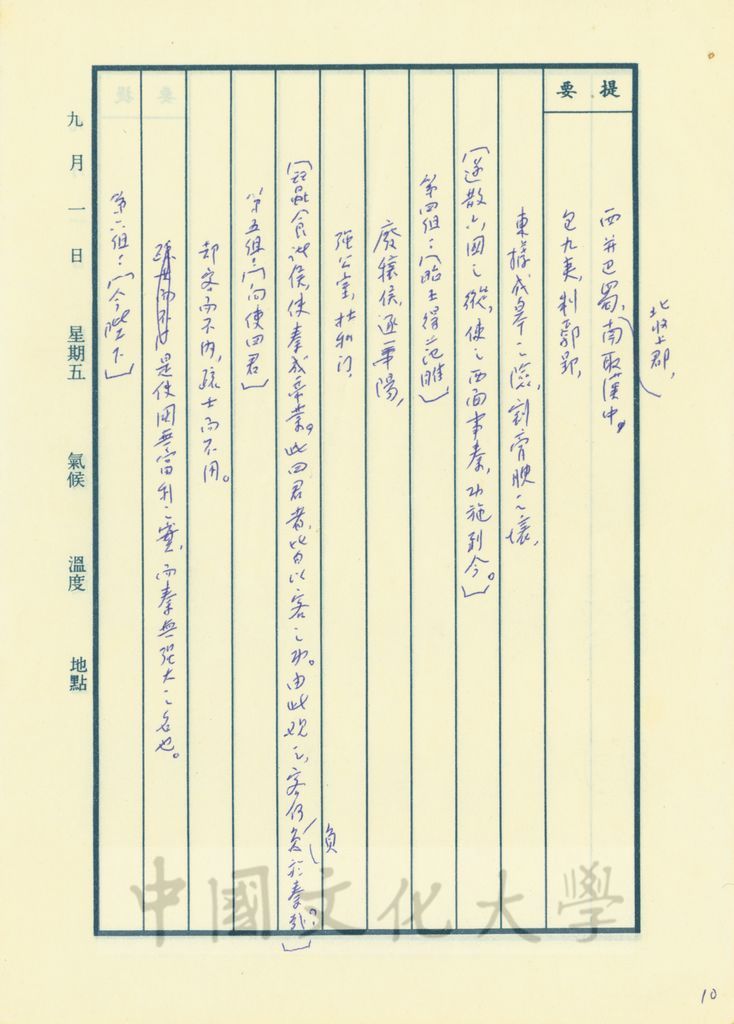 提要
北收上郡，
西并巴蜀，南取漢中。
包九夷，制鄢郢，
東據成皋之險，割膏腴之壤，
〔遂散六國之縱，使之西面事秦，功施到今。〕
第四組：〔昭王得范睢〕
廢穰侯，逐華陽，
強公室，杜私门，
〔蠶食诸侯，使秦成帝業。此四君者，皆以客之功。由此观之，客何負於秦哉？〕
負
第五組：〔向使四君〕
却客而不内，疏士而不用。
是使國無富利之實，而秦無強大之名也。
第六組：〔今陛下〕
九月一日 星期五 氣候 溫度 地點
中國文化大學
10